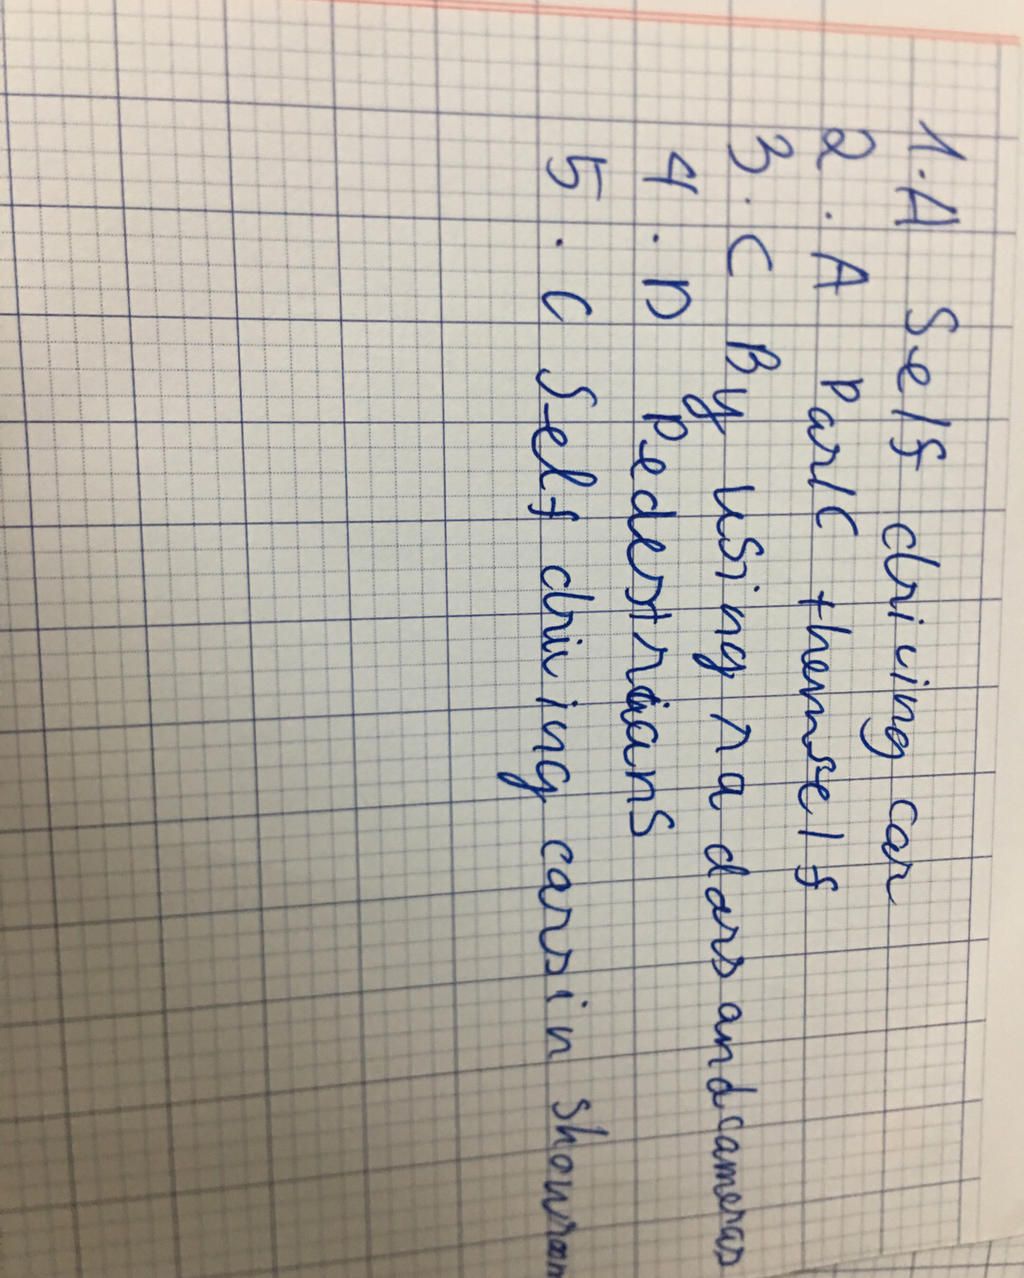 1. A Self driving car
2. A Park themself
3. C By using radars and cameras
4. D Pedestrians
5. C Self driving cars in